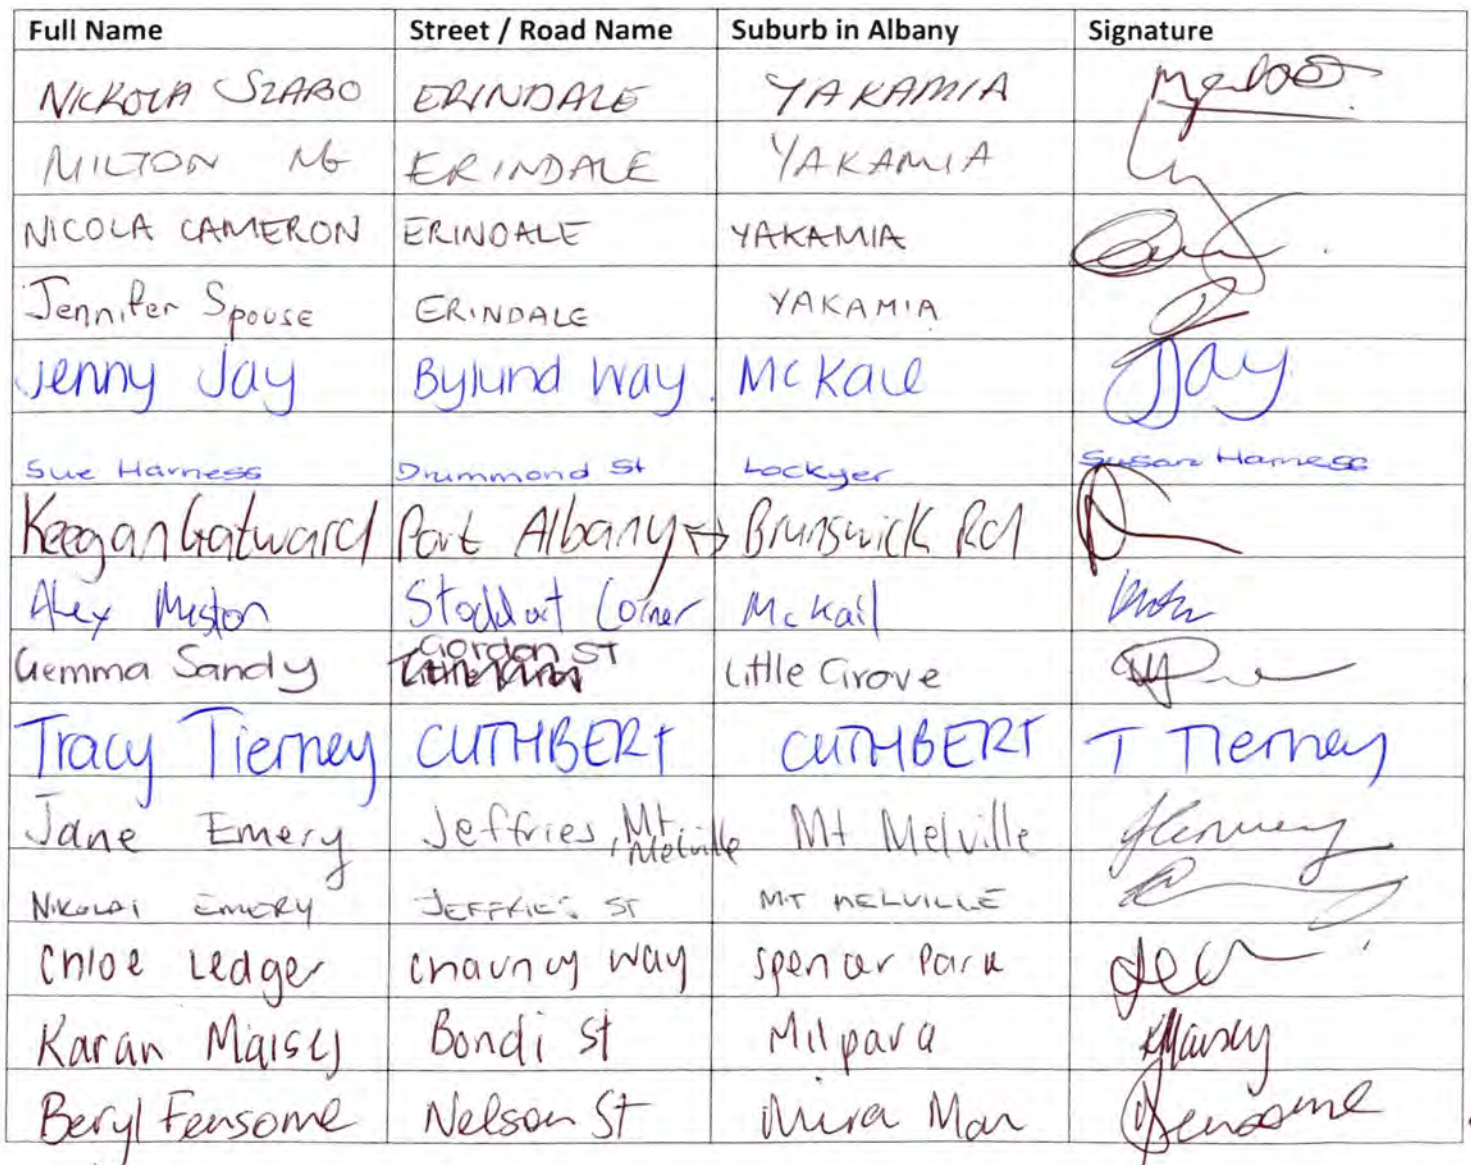 Full Name Street / Road Name Suburb in Albany Signature
NICKOLA SZABO ERINDALE YAKAMIA
MILTON NG ERINDALE YAKAMIA
NICOLA CAMERON ERINDALE YAKAMIA
Jennifer Spouse ERINDALE YAKAMIA
Jenny Jay Bylund Way McKail JJay
Sue Harness Drummond St Lockyer Susan Harness
Keegan Gatward Port Albany ↔ Brunswick Rd
Alex Miston Stoddart Corner McKail
Gemma Sandy Gordon ST Little Grove
Tracy Tierney CUTHBERT CUTHBERT T Tierney
Jane Emery Jeffries, Mt Melville Mt Melville
NIKOLAI EMERY JEFFRIES ST MT MELVILLE
Chloe Ledger chauncy way spencer park
Karan Maisey Bondi St Milpara KMaisey
Beryl Fensome Nelson St Mira Mar BFensome